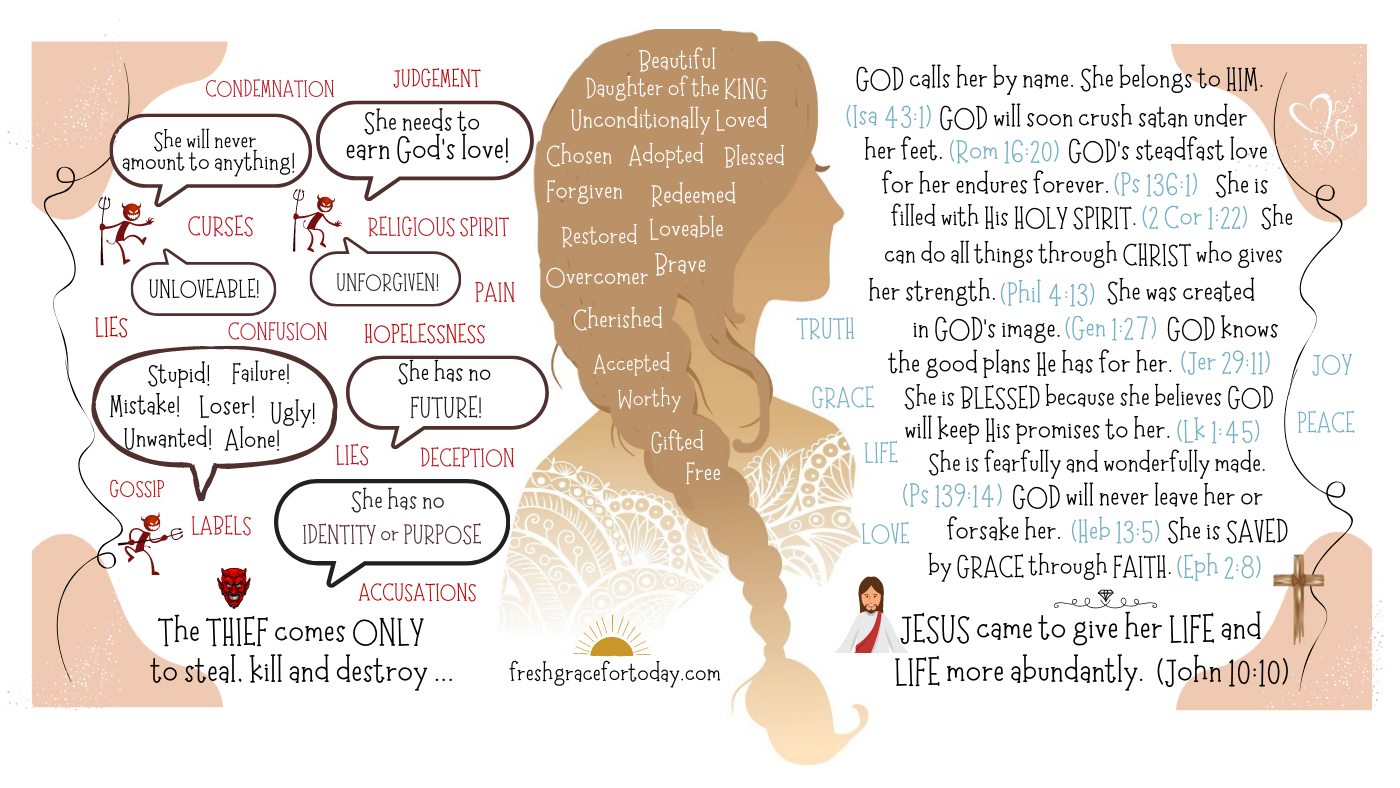 CONDEMNATION
JUDGEMENT
She will never
amount to anything!
She needs to
earn God's love!
CURSES
RELIGIOUS SPIRIT
UNLOVEABLE!
UNFORGIVEN!
PAIN
LIES
CONFUSION
HOPELESSNESS
Stupid! Failure!
Mistake! Loser! Ugly!
Unwanted! Alone!
She has no
FUTURE!
LIES
DECEPTION
GOSSIP
LABELS
She has no
IDENTITY or PURPOSE
ACCUSATIONS
The THIEF comes ONLY
to steal, kill and destroy ...
Beautiful
Daughter of the KING
Unconditionally Loved
Chosen Adopted Blessed
Forgiven Redeemed
Restored Loveable
Overcomer Brave
Cherished
Accepted
Worthy
Gifted
Free
freshgracefortoday.com
GOD calls her by name. She belongs to HIM.
(Isa 43:1) GOD will soon crush satan under
her feet. (Rom 16:20) GOD's steadfast love
for her endures forever. (Ps 136:1) She is
filled with His HOLY SPIRIT. (2 Cor 1:22) She
can do all things through CHRIST who gives
her strength. (Phil 4:13) She was created
in GOD's image. (Gen 1:27) GOD knows
the good plans He has for her. (Jer 29:11)
She is BLESSED because she believes GOD
will keep His promises to her. (Lk 1:45)
She is fearfully and wonderfully made.
(Ps 139:14) GOD will never leave her or
forsake her. (Heb 13:5) She is SAVED
by GRACE through FAITH. (Eph 2:8)
TRUTH
GRACE
LIFE
LOVE
JOY
PEACE
JESUS came to give her LIFE and
LIFE more abundantly. (John 10:10)